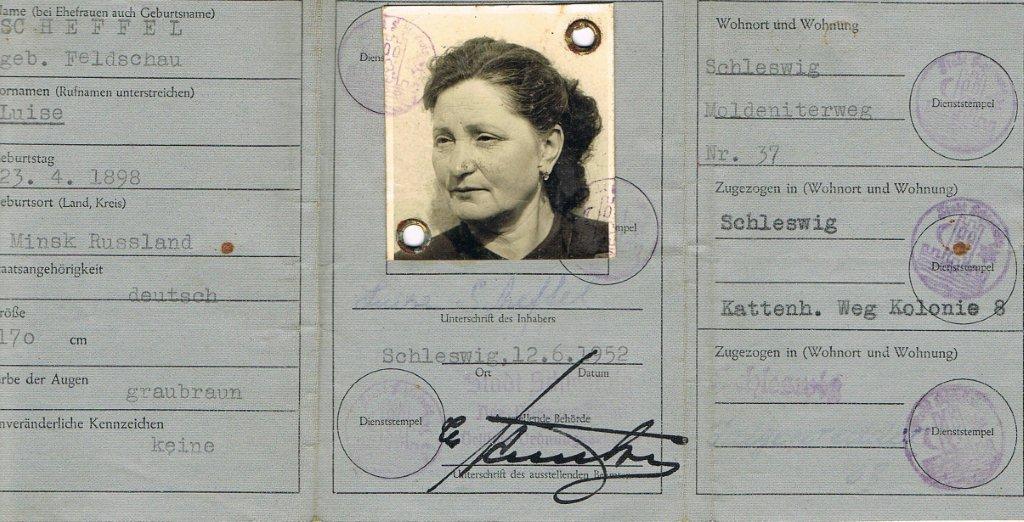 ame (bei Ehefrauen auch Geburtsname)
SCHEFFEL
geb. Feldschau
ornamen (Rufnamen unterstreichen)
Luise
eburtstag
23. 4. 1898
eburtsort (Land, Kreis)
Minsk Russland
aatsangehörigkeit
deutsch
röße
170 cm
rbe der Augen
graubraun
nveränderliche Kennzeichen
keine
Diens
mpel
Unterschrift des Inhabers
Schleswig, 12.6.1952
Ort Datum
Dienststempel
Ausstellende Behörde
Unterschrift des ausstellenden
Wohnort und Wohnung
Schleswig
Moldeniterweg
Nr. 37
Dienststempel
Zugezogen in (Wohnort und Wohnung)
Schleswig
Kattenh. Weg Kolonie 8
Dienststempel
Zugezogen in (Wohnort und Wohnung)
Schleswig
Dienststempel